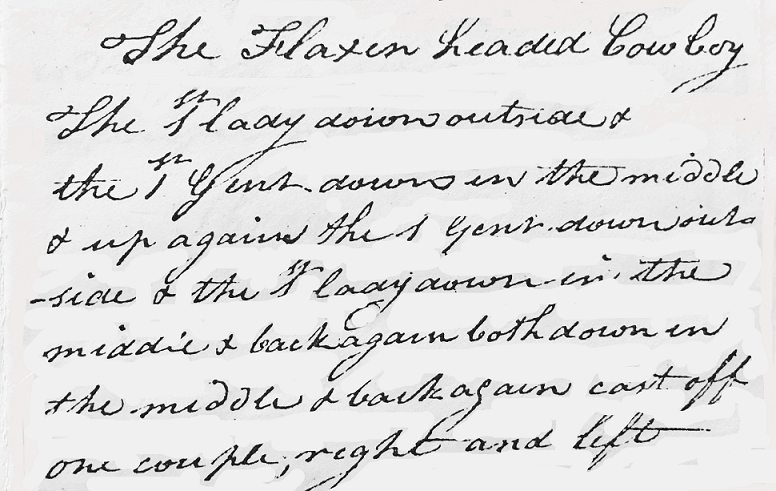 The Flaxen headed Cow boy
The 1st lady down outside &
the 1st Gent. down in the middle
& up again the 1 Gent. down out-
-side & the 1st lady down in the
middle & back again both down in
the middle & back again cast off
one couple, right and left